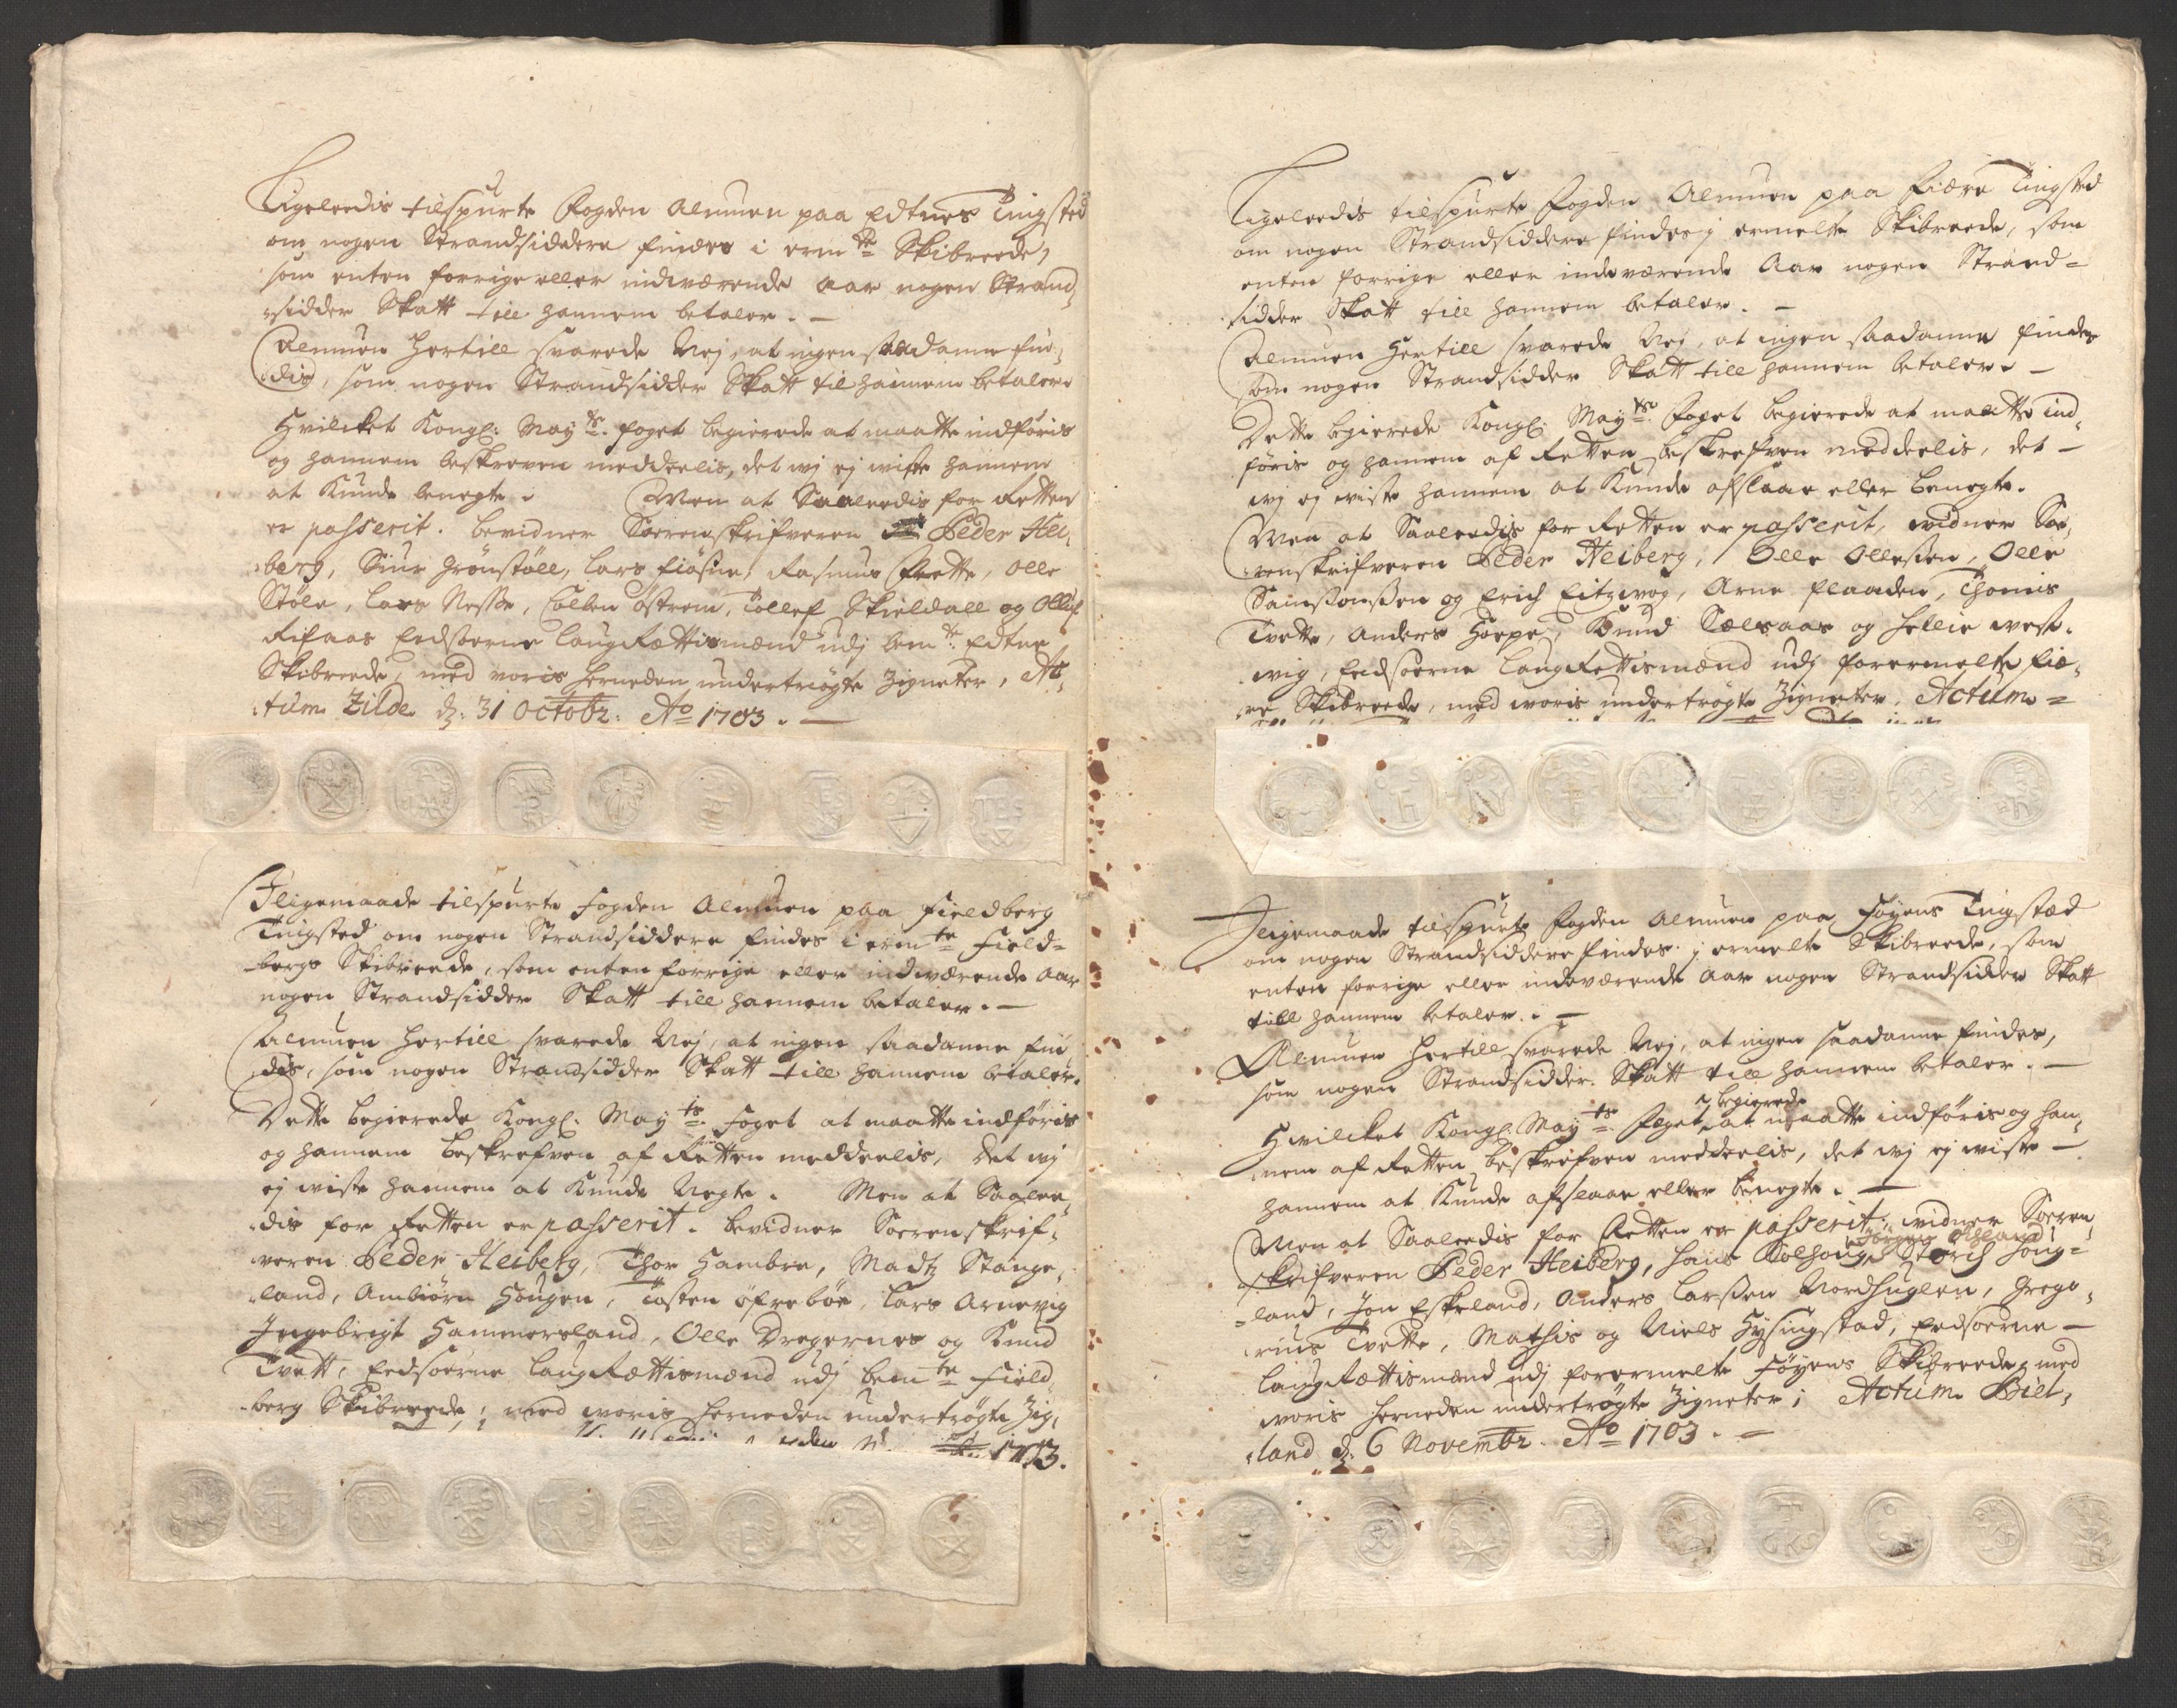 Ligeleedis tilspurte fogden Almuen paa Edtnes Tingsted
om nogen Strandsiddere findes i erm.te Skibreede,
som enten forrige eller indwærende aar nogen Strand¸
¸sidder Skatt till hannem betaler. —
Almuen hertill svarede Nej, at ingen saadanne fin¸
¸dis, som nogen Strandsidder Skatt til hannem betaler.
Hvilcket Kongl: May.ts foget begierede at maatte indföris
og hannem beskreven meddeelis, det wj ej wiste hannem
at kunde benegte. Men at Saaleedis for Retten
er passerit. bevidner Sorenskrifveren Peder Hei¸
¸berg, Siur Grönstöll, Lars fiösne, Rasmus Frette, Olle
Støle, Lars Nesse, Colben Östrem, Tollef Skieldall og Ollef
Rifaas Eedsoerne LaugRættismænd udj bem.te Edtne
Skibreede, med voris herneden undertrögte Zigneter, Ac¸
¸tum Zilde d: 31 Octobr: Ao 1703. —
Iligemaade tilspurte fogden Almuen paa Fieldberg
Tingsted om nogen Strandsiddere findes i erm.te Field¸
¸bergs Skibreede, som enten forrige eller indwærende aar
nogen Strandsidder Skatt till hannem betaler. —
Almuen hertill svarede Nej, at ingen saadanne fin¸
¸dis, som nogen Strandsidder Skatt till hannem betaler.
Dette begierede Kongl. May.ts foget at maatte indföris
og hannem beskrefven af Retten meddeelis, det wj
ej wiste hannem at kunde Negte. Men at Saalee¸
¸dis for Retten er passerit. bevidner Sorenskrif¸
¸veren Peder Heiberg, Thor Hambre, Madtz Stange¸
¸land, Ambiörn Hougen, Tosten Öfreböe, Lars Arnevig
Ingebrigt Hammersland, Olle Dregernes og Knud
Tvett, Eedsoerne LaugRættismænd udj bem.te Field¸
¸berg Skibreede, med woris herneden undertrögte Zig¸
1703.
Ligeleedis tilspurte fogden Almuen paa Fiære Tingsted
om nogen Strandsiddere findes j ermelte Skibreede, som
enten forrige eller indeværende Aar nogen Strand=
sidder Skatt till hannem betaler. —
Almuen hertill svarede Nej, at ingen saadanne findes
som nogen Strandsidder Skatt till hannem betaler. —
Dette begierede Kongl. May.ts foget begierede at maatte ind¸
föris og hannem af Retten beskrefven meddeelis, det —
wj ej wiste hannem at kunde afslaae eller benegte.
Men at Saaleedis for Retten er passerit, widner Sor¸
¸renskrifveren Peder Heiberg, Olle Ollessen, Olle
Samsonssen og Erich Eitzwog, Arne flaaden, Thomis
Tvette, Anders Hoepe, Knud Sælsaas og Hellie west¸
¸wig, Eedsoerne LaugRettismænd udj forermelte fiæ¸
¸re Skibreede, med woris undertrögte Zigneter. Actum =
Iligemaade tilspurte fogden Almuen paa Föyens Tingstæd
om nogen Strandsiddere findes j ermelte Skibreede, som
enten forrige eller indeværende Aar nogen Strandsidder Skatt
till hannem betaler. —
Almuen hertill svarede Nej, at ingen saadanne findes,
som nogen Strandsidder Skatt till hannem betaler. —
Hwilcket Kongl. May.ts foget begierede at maatte indföris og han¸
¸nem af Retten beskrefven meddeelis, det wj ej wiste —
hannem at kunde afslaae eller benegte. —
Men at Saaleedis for Retten er passerit, widner Soren¸
¸skrifveren Peder Heiberg, Hans Kolhoug, Jörgen Store Houg=
=land, Jon Eskeland, Anders Larssen Nordhuglen, Grego¸
¸rius Tvette, Mathis og Niels Hysingstad, Eedsoerne —
LaugRættismænd udj forermelte Föyens Skibreede, med
woris herneden undertrögte Zigneter; Actum Biel¸
¸land d: 6 Novembr. Ao 1703. —